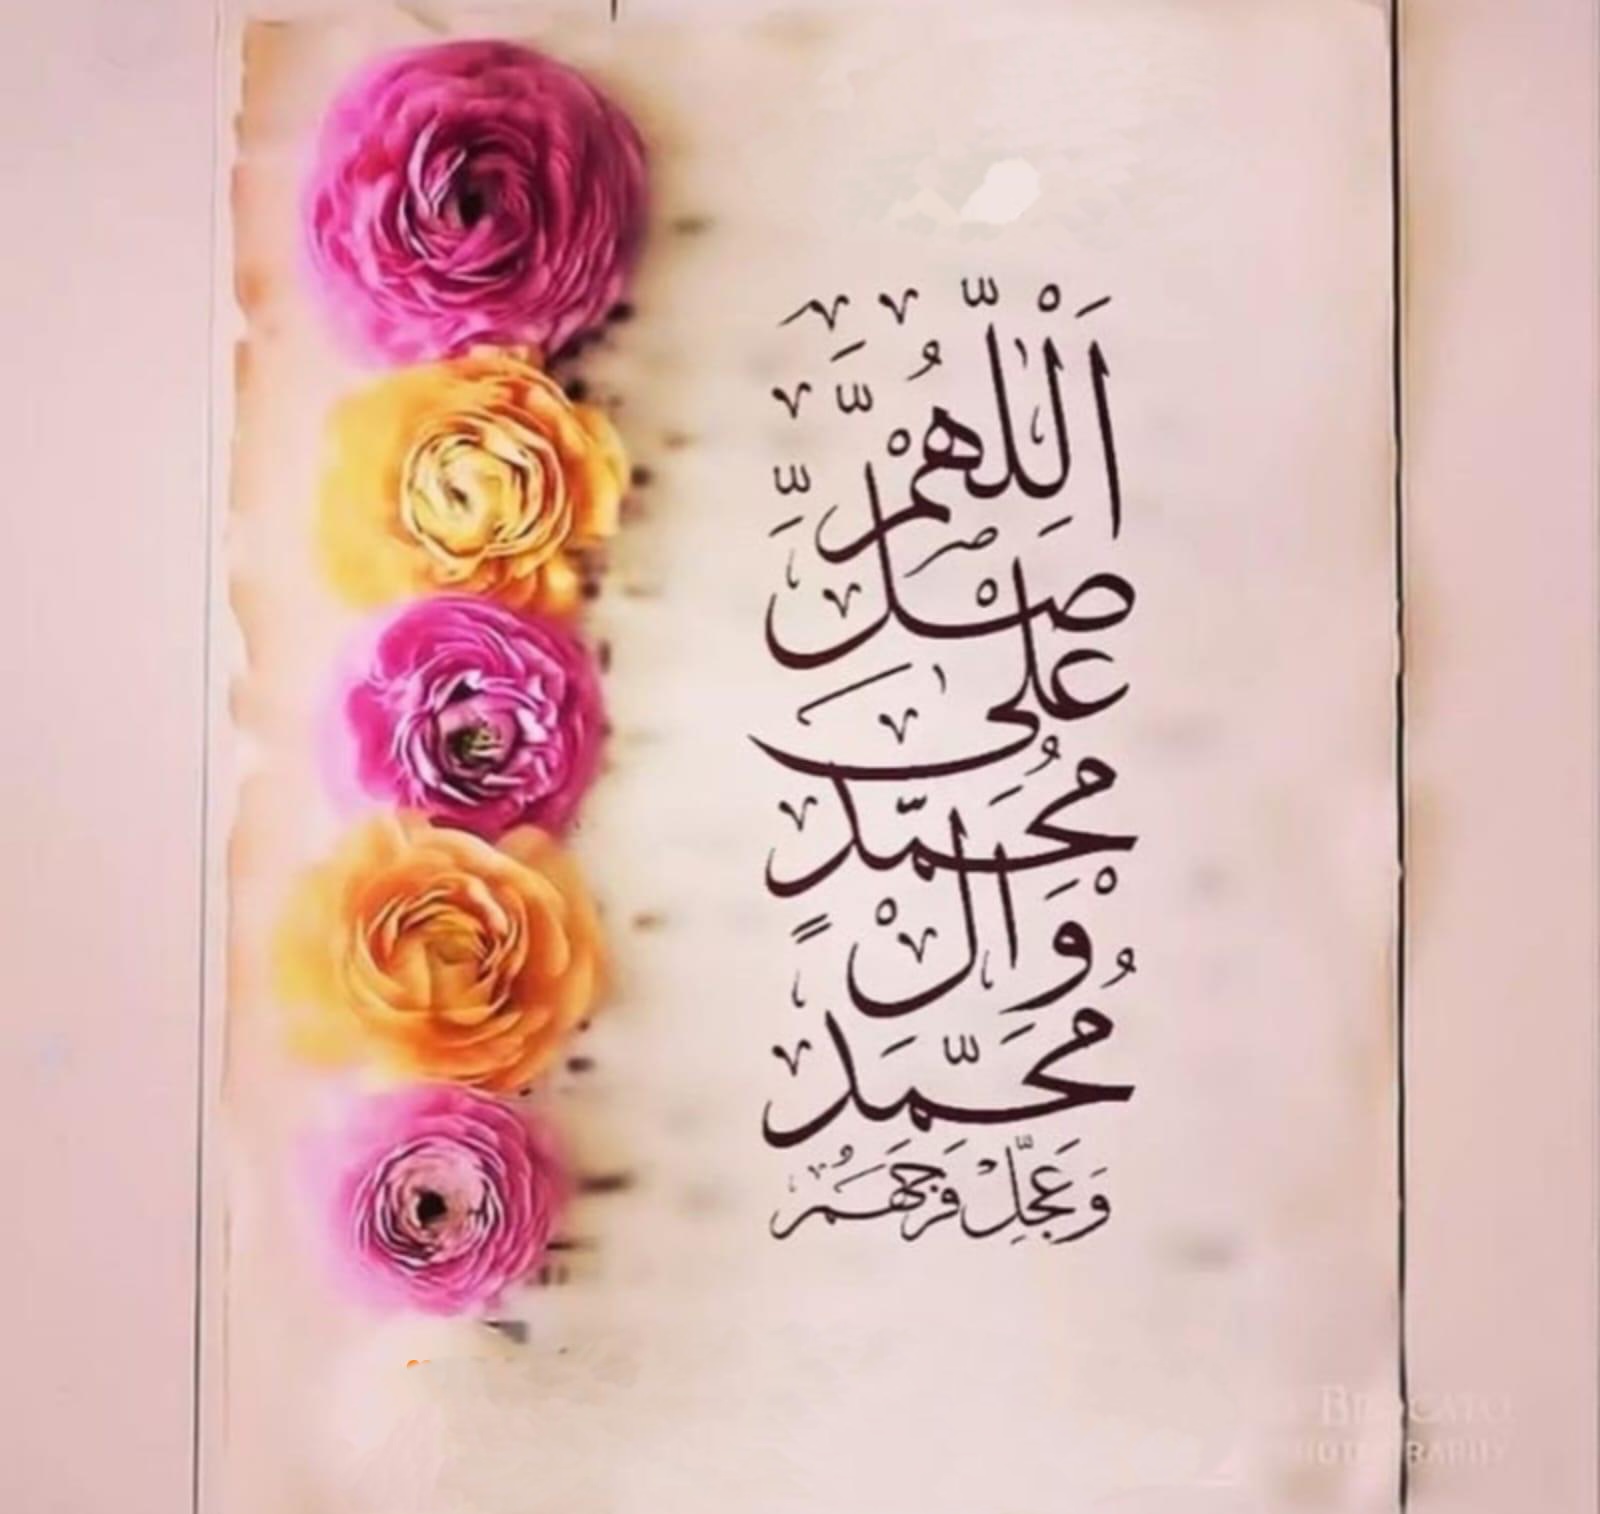 اَللّٰهُمَّ
صَلِّ
عَلٰی
مُحَمَّدٍ
وَ اٰلِ
مُحَمَّدٍ
وَعَجِّلْ فَرَجَهُمْ
PHOTOGRAPHY